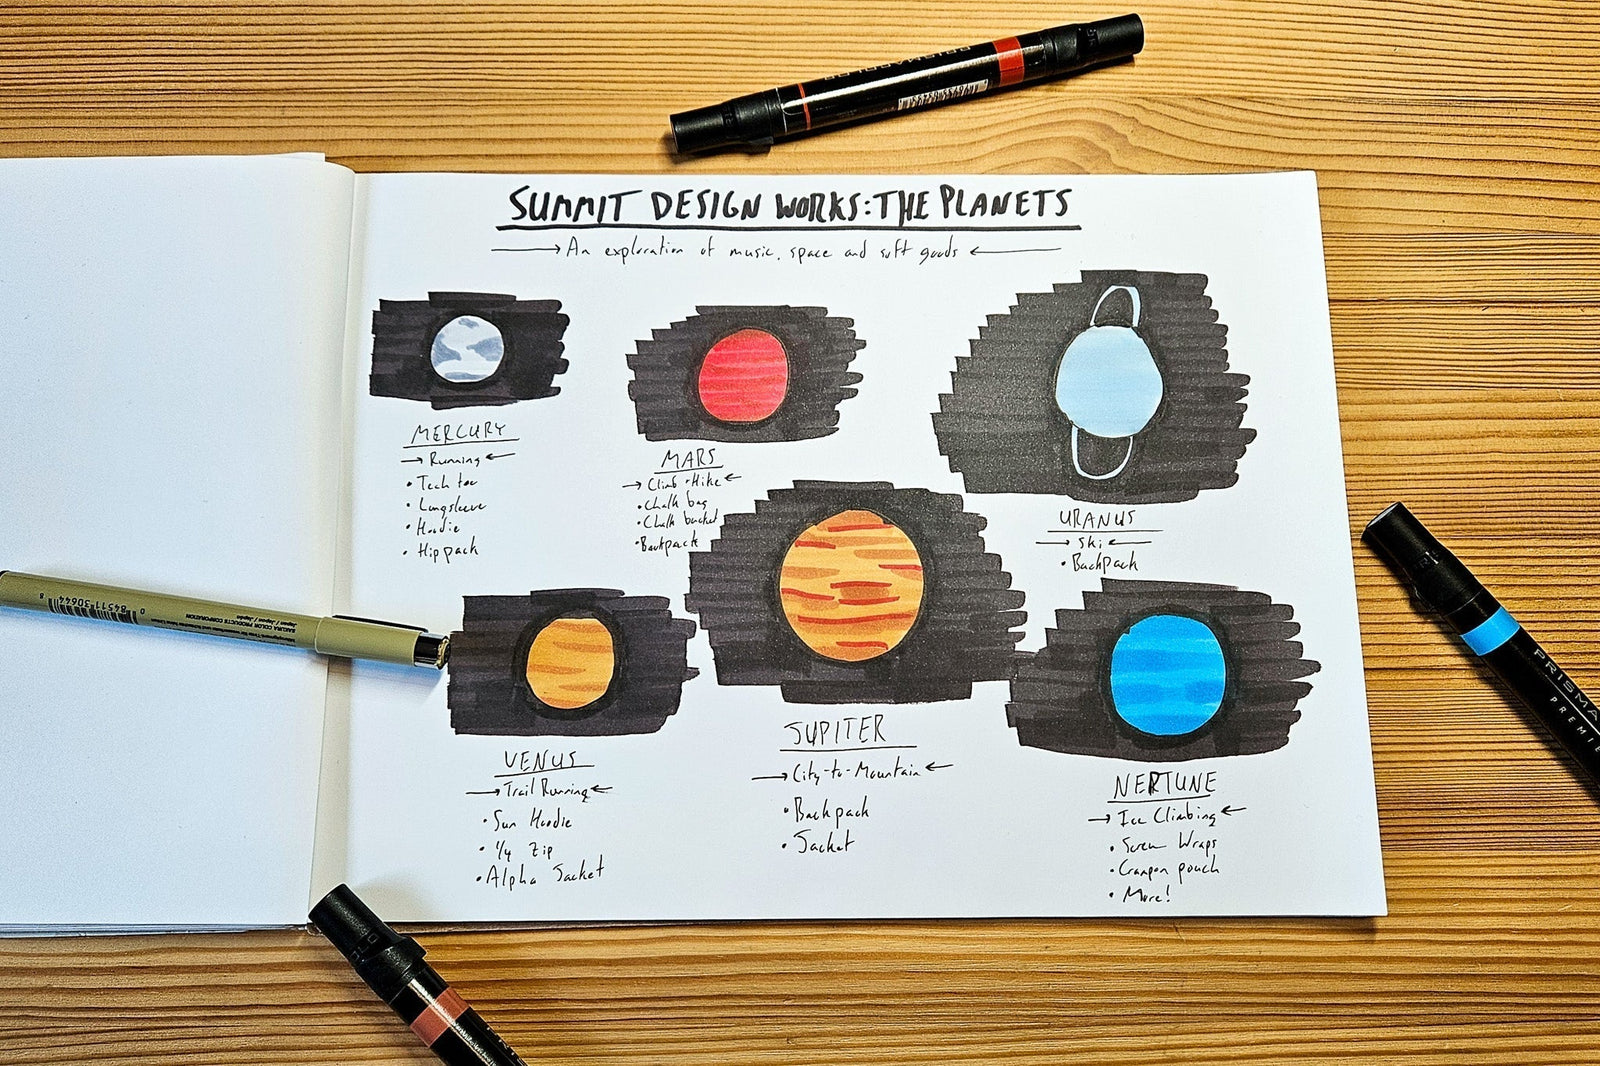 SUMMIT DESIGN WORKS: THE PLANETS
An exploration of music, space and soft goods
MERCURY
Running
• Tech tee
• Longsleeve
• Hoodie
• Hip pack
MARS
Climb + Hike
• Chalk bag
• Chalk bucket
• Backpack
URANUS
Ski
• Backpack
VENUS
Trail Running
• Sun Hoodie
• 1/4 Zip
• Alpha Jacket
JUPITER
City-to-Mountain
• Backpack
• Jacket
NEPTUNE
Ice Climbing
• Screw Wraps
• Crampon pouch
• More!
SAKURA COLOR PRODUCTS CORPORATION
0 84511 30644 8
PRISMA
PREMIE